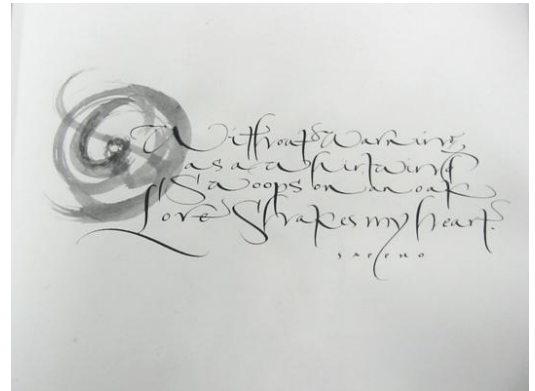 Without warning,
as a whirlwind
Swoops on an oak
Love Shakes my heart.
SAPPHO